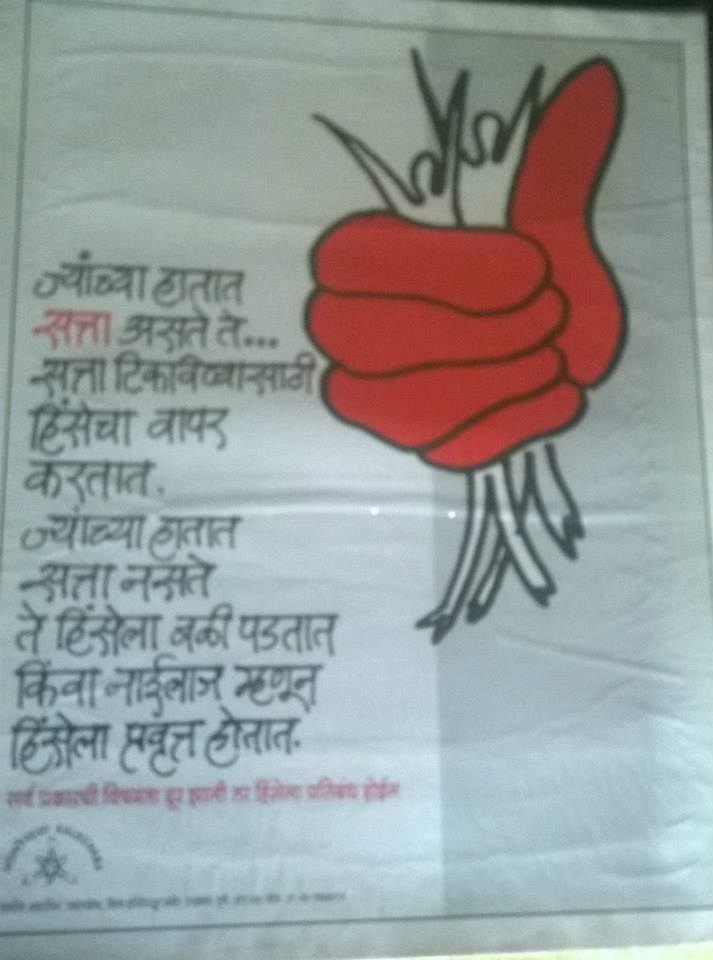 ज्यांच्या हातात
सत्ता असते ते...
सत्ता टिकविण्यासाठी
हिंसेचा वापर
करतात.
ज्यांच्या हातात
सत्ता नसते
ते हिंसेला बळी पडतात
किंवा नाईलाज म्हणून
हिंसेला प्रवृत्त होतात.
सर्व प्रकारची विषमता दूर झाली तर हिंसेला प्रतिबंध होईल